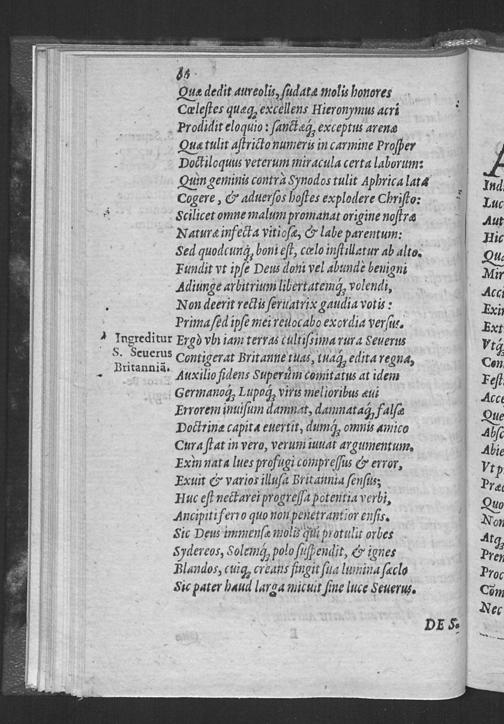 Quæ dedit aureolis, sudatæ molis honores
Cœlestes quæq́; excellens Hieronymus acri
Prodidit eloquio : sanctæq́; exceptus arenæ
Quæ tulit astricto numeris in carmine Prosper
Doctiloquus veterum miracula certa laborum:
Quin geminis contrà Synodos tulit Aphrica lata
Cogere, & aduersos hostes explodere Christo:
Scilicet omne malum promanat origine nostræ
Naturæ infecta vitiosæ, & labe parentum:
Sed quodcunq́; boni est, cœlo instillatur ab alto.
Fundit vt ipse Deus doni vel abundè benigni
Adiunge arbitrium libertatemq́; volendi,
Non deerit rectis seruatrix gaudia votis :
Prima sed ipse mei reuocabo exordia versus.
Ingreditur
S. Seuerus
Britanniã.
Ergò vbi iam terras cultissima rura Seuerus
Contigerat Britanne tuas, tuaq́; edita regna,
Auxilio fidens Superûm comitatus at idem
Germanoq́; Lupoq́; viris melioribus æui
Errorem inuisum damnat, damnataq́; falsæ
Doctrinæ capita euertit, dumq́; omnis amico
Cura stat in vero, verum iuuat argumentum.
Exin nata lues profugi compressus & error,
Exuit & varios illusa Britannia sensus;
Huc est nectarei progressa potentia verbi,
Ancipiti ferro quo non penetrantior ensis.
Sic Deus immensæ molis qui protulit orbes
Sydereos, Solemq́; polo suspendit, & ignes
Blandos, cuiq́; creans fingit sua lumina sæclo
Sic pater haud larga micuit sine luce Seuerus.
DE S.
Ind
Luc
Aut
Hic
Quæ
Mir
Acci
Exin
Ext
Vtq́;
Con
Fest
Acce
Que
Absc
Abie
Vt p
Præ
Quo
Non
Atq́;
Pren
Proc
Com
Nec